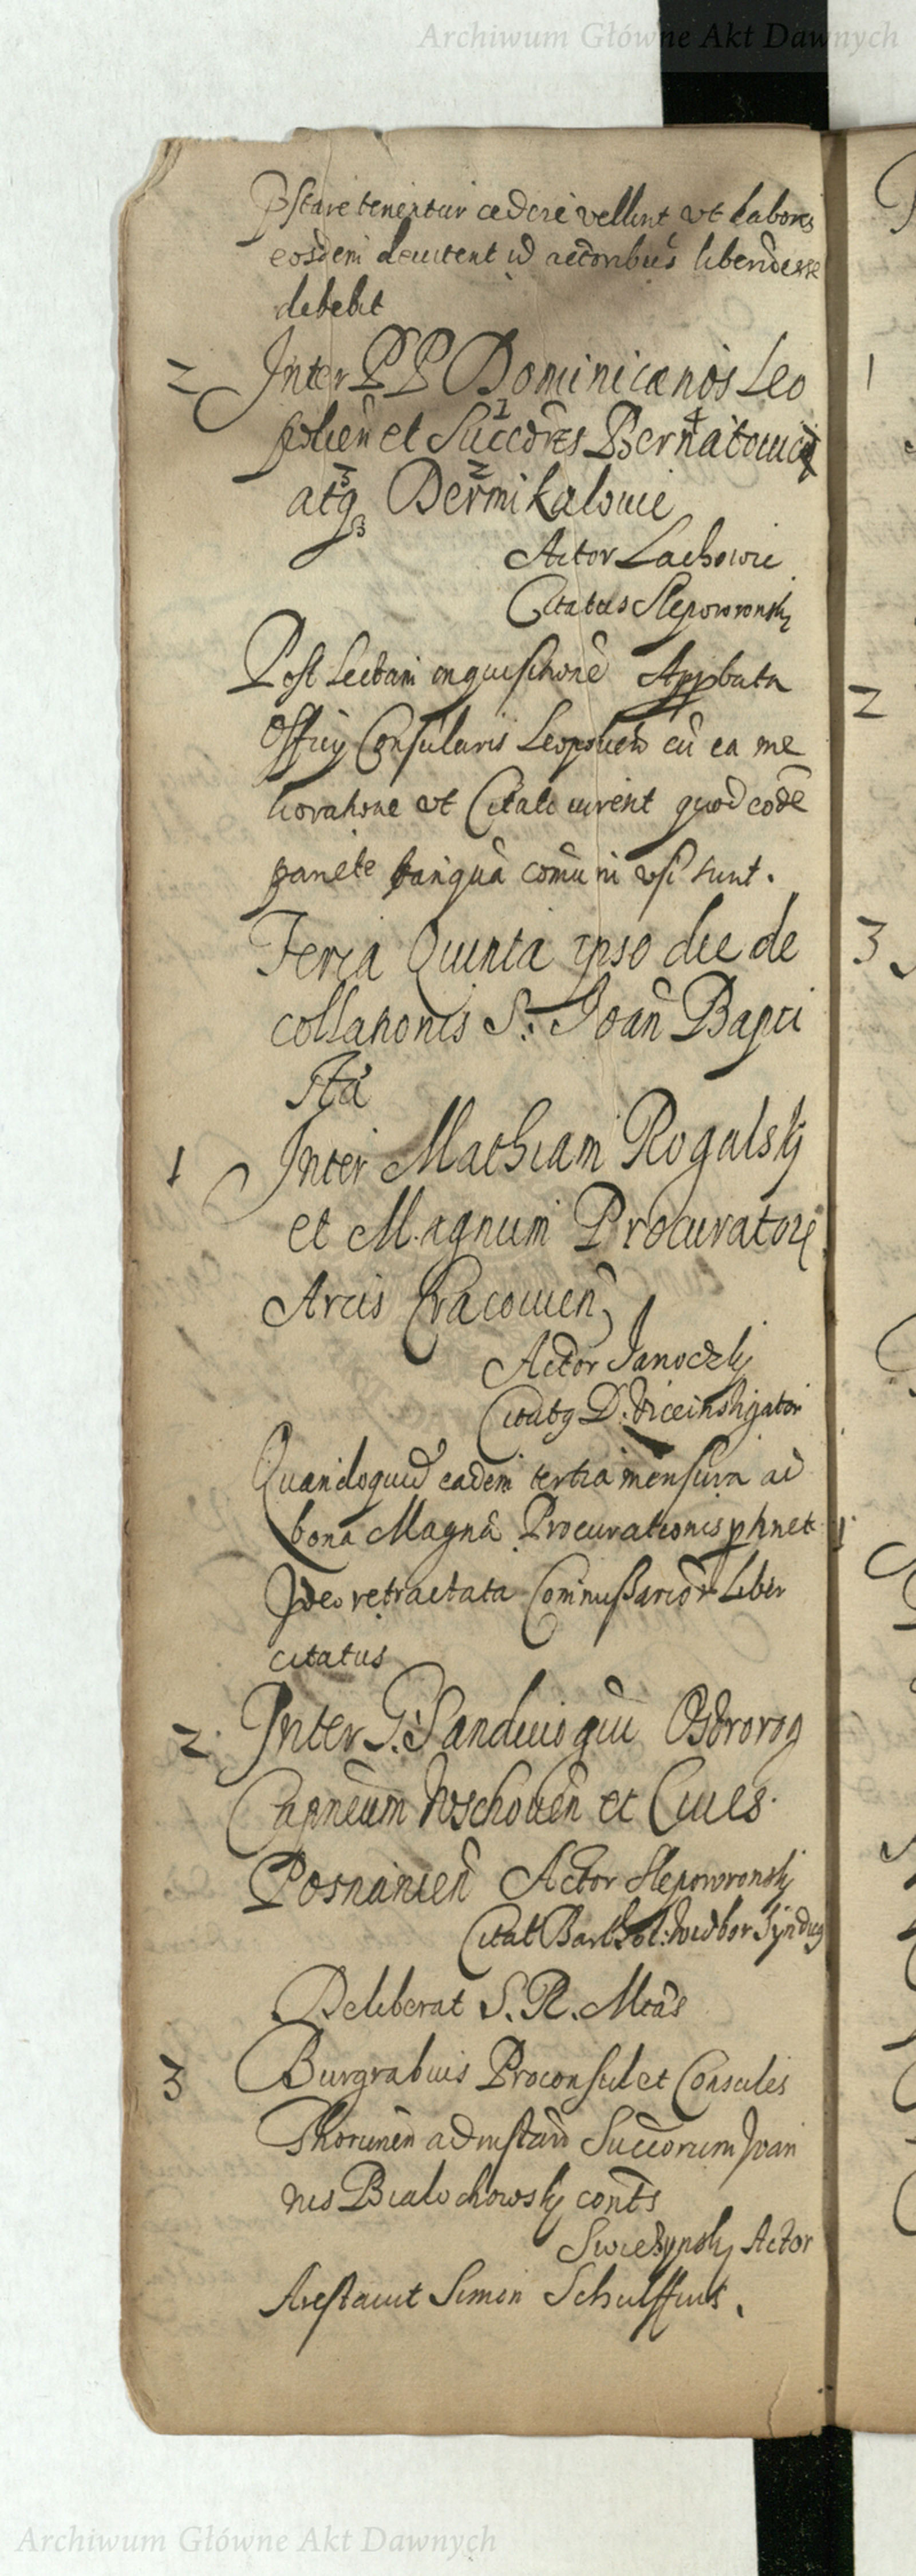 Archiwum Główne Akt Dawnych
pstare tenentur cedere vellent vt labores
eosdem devitent id actoribus liberū esse
debebit
2 Inter PP Dominicanos Leo
polien et Succōres Bernatowicz
atq Dermikalowic
Actor Lachowic
Citatus Slepowronsky
Post Lectam inquisitionē Appbata
Officy Consularis Leopolien cū ea me
lioratione vt Citati iurent quod eodē
pariete tanquā comūni vsi sunt.
Feria Quinta ipso die de
collationis S. Joan̄ Bapti
stæ
1 Inter Mathiam Rogalsky
et Magnum Procuratorē
Arcis Cracovien
Actor Janoczky
Citatq D. Viceinstigator
Quandoquid eadem tertia mensura ad
bona Magnæ Procurationis ptinet
Ideo retractata Commissarior Liber
citatus
2 Inter G. Sandivogiū Ostrorog
Capneum Wschovēn et Cives
Posnanien Actor Slepowronsky
Citat Barthol: Syndiq
Deliberat S. R. Mtās
3 Burgrabius Proconsul et Consules
Thorunen ad instān Succorum Joan
nis Bialochowsky conts
Actor
Arestavit Simon Schulffius.
Archiwum Główne Akt Dawnych